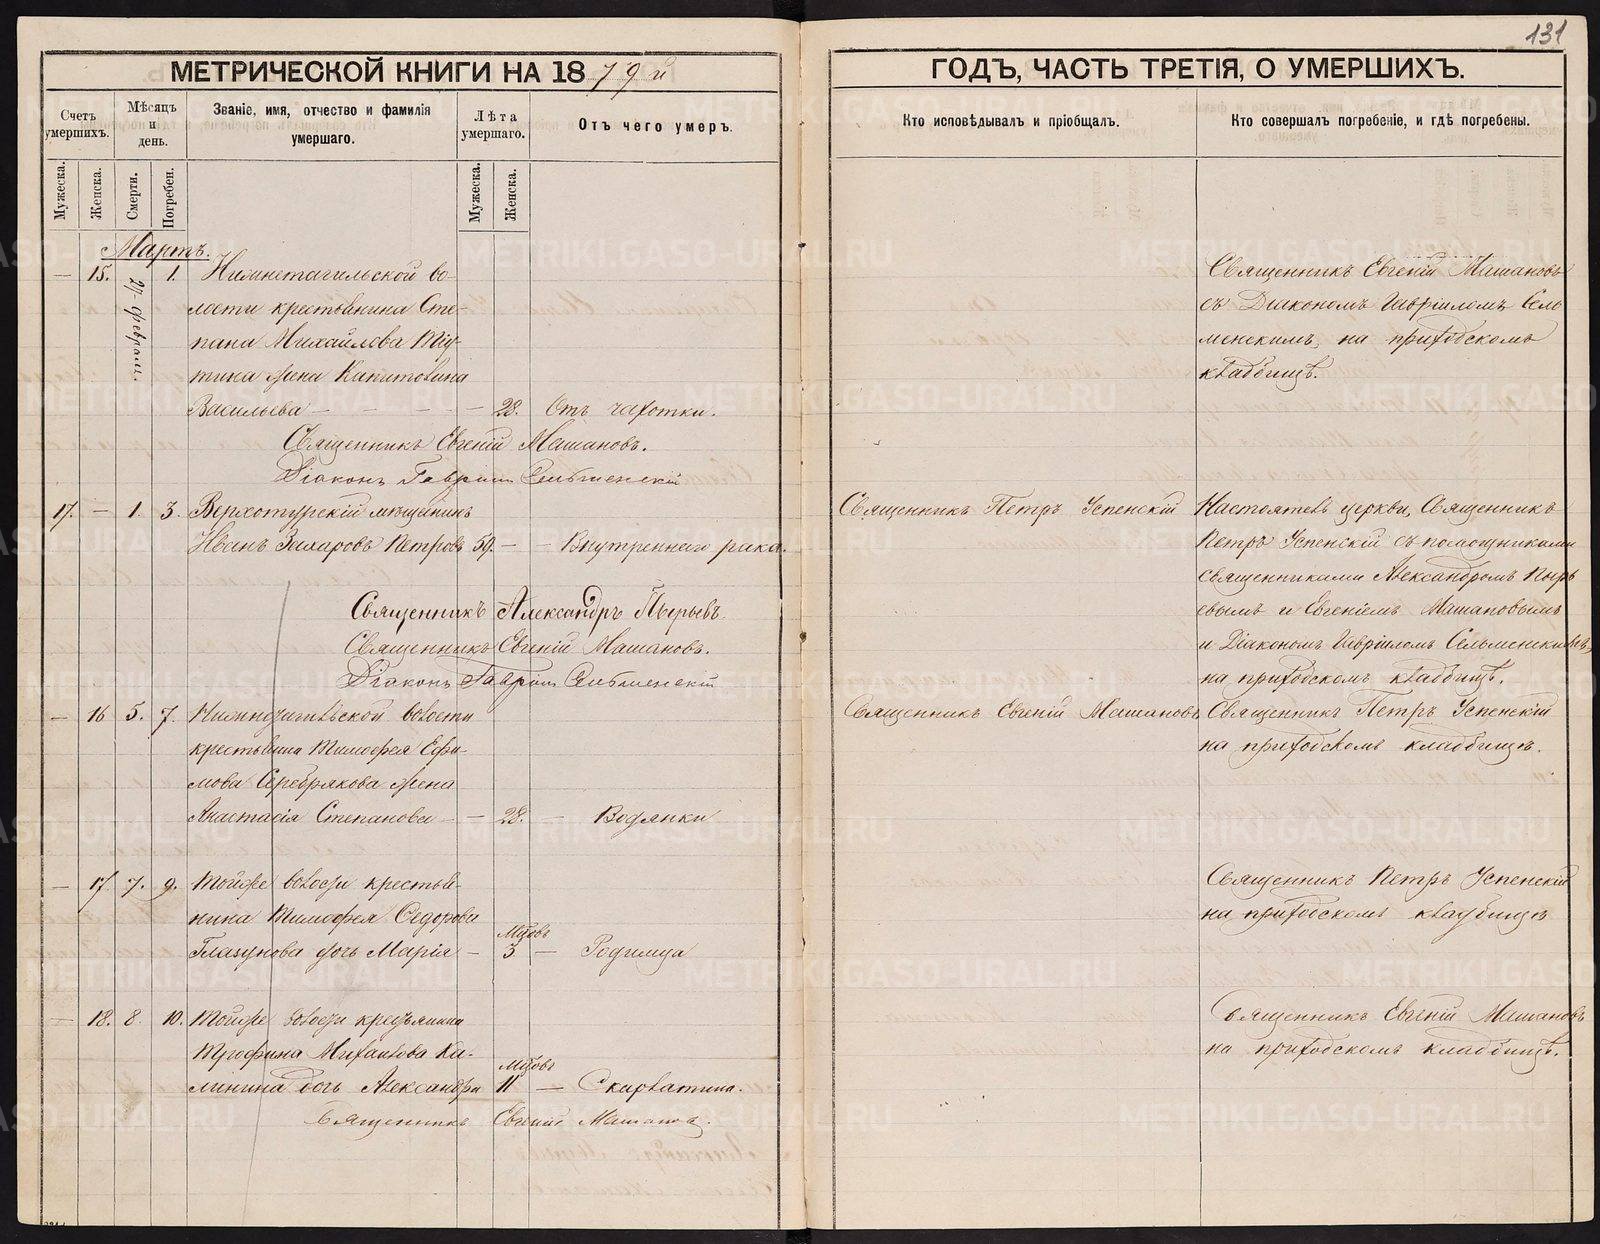 131
МЕТРИЧЕСКОЙ КНИГИ НА 1879 й
ГОДЪ, ЧАСТЬ ТРЕТІЯ, О УМЕРШИХЪ.
Счетъ умершихъ.
Мѣсяцъ и день.
Званіе, имя, отчество и фамилія умершаго.
Лѣта умершаго.
Отъ чего умеръ.
Кто исповѣдывалъ и пріобщалъ.
Кто совершалъ погребеніе, и гдѣ погребены.
Мужеска.
Женска.
Смерти.
Погребен.
Мужеска.
Женска.
Мартъ.
— 15. 27 Февраля. 1. Нижнетагильской во-
лости крестьянина Сте-
пана Михайлова Тю-
тина жена Капитолина
Васильева — — — — — 28. Отъ чахотки.
Священникъ Евгеній Машановъ
съ Діакономъ Гавріиломъ Сель
менскимъ, на приходскомъ
кладбищѣ.
Священникъ Евгеній Машановъ.
Діаконъ Гавріилъ Сельменскій
17. — 1. 3. Верхотурскій мѣщанинъ
Иванъ Захаровъ Петровъ 59. — — Внутренняго рака.
Священникъ Петръ Успенскій
Настоятель церкви, Священникъ
Петръ Успенскій съ помощниками
священниками Александромъ Пырь
евымъ и Евгеніемъ Машановымъ
и Діакономъ Гавріиломъ Сельменскимъ,
на приходскомъ кладбищѣ.
Священникъ Александръ Пырьевъ
Священникъ Евгеній Машановъ.
Діаконъ Гавріилъ Сельменскій
— 16 5. 7. Нижнетагильской волости
крестьянина Тимофея Ефи-
мова Серебрякова жена
Анастасія Степанова — — 28. — Водянки
Священникъ Евгеній Машановъ
Священникъ Петръ Успенскій
на приходскомъ кладбищѣ.
— 17 7. 9. Тойже волости крестья-
нина Тимофея Сидорова
Глазунова дочь Марія — Мѣсъ 3 — Родимца
Священникъ Петръ Успенскій
на приходскомъ кладбищѣ
— 18. 8. 10. Тойже волости крестьянина
Трофима Михайлова Ка-
линина дочь Александра Мѣсъ 11 — Скарлатина.
Священникъ Евгеній Машановъ
на приходскомъ кладбищѣ.
Священникъ Евгеній Машановъ.
METRIKI.GASO-URAL.RU